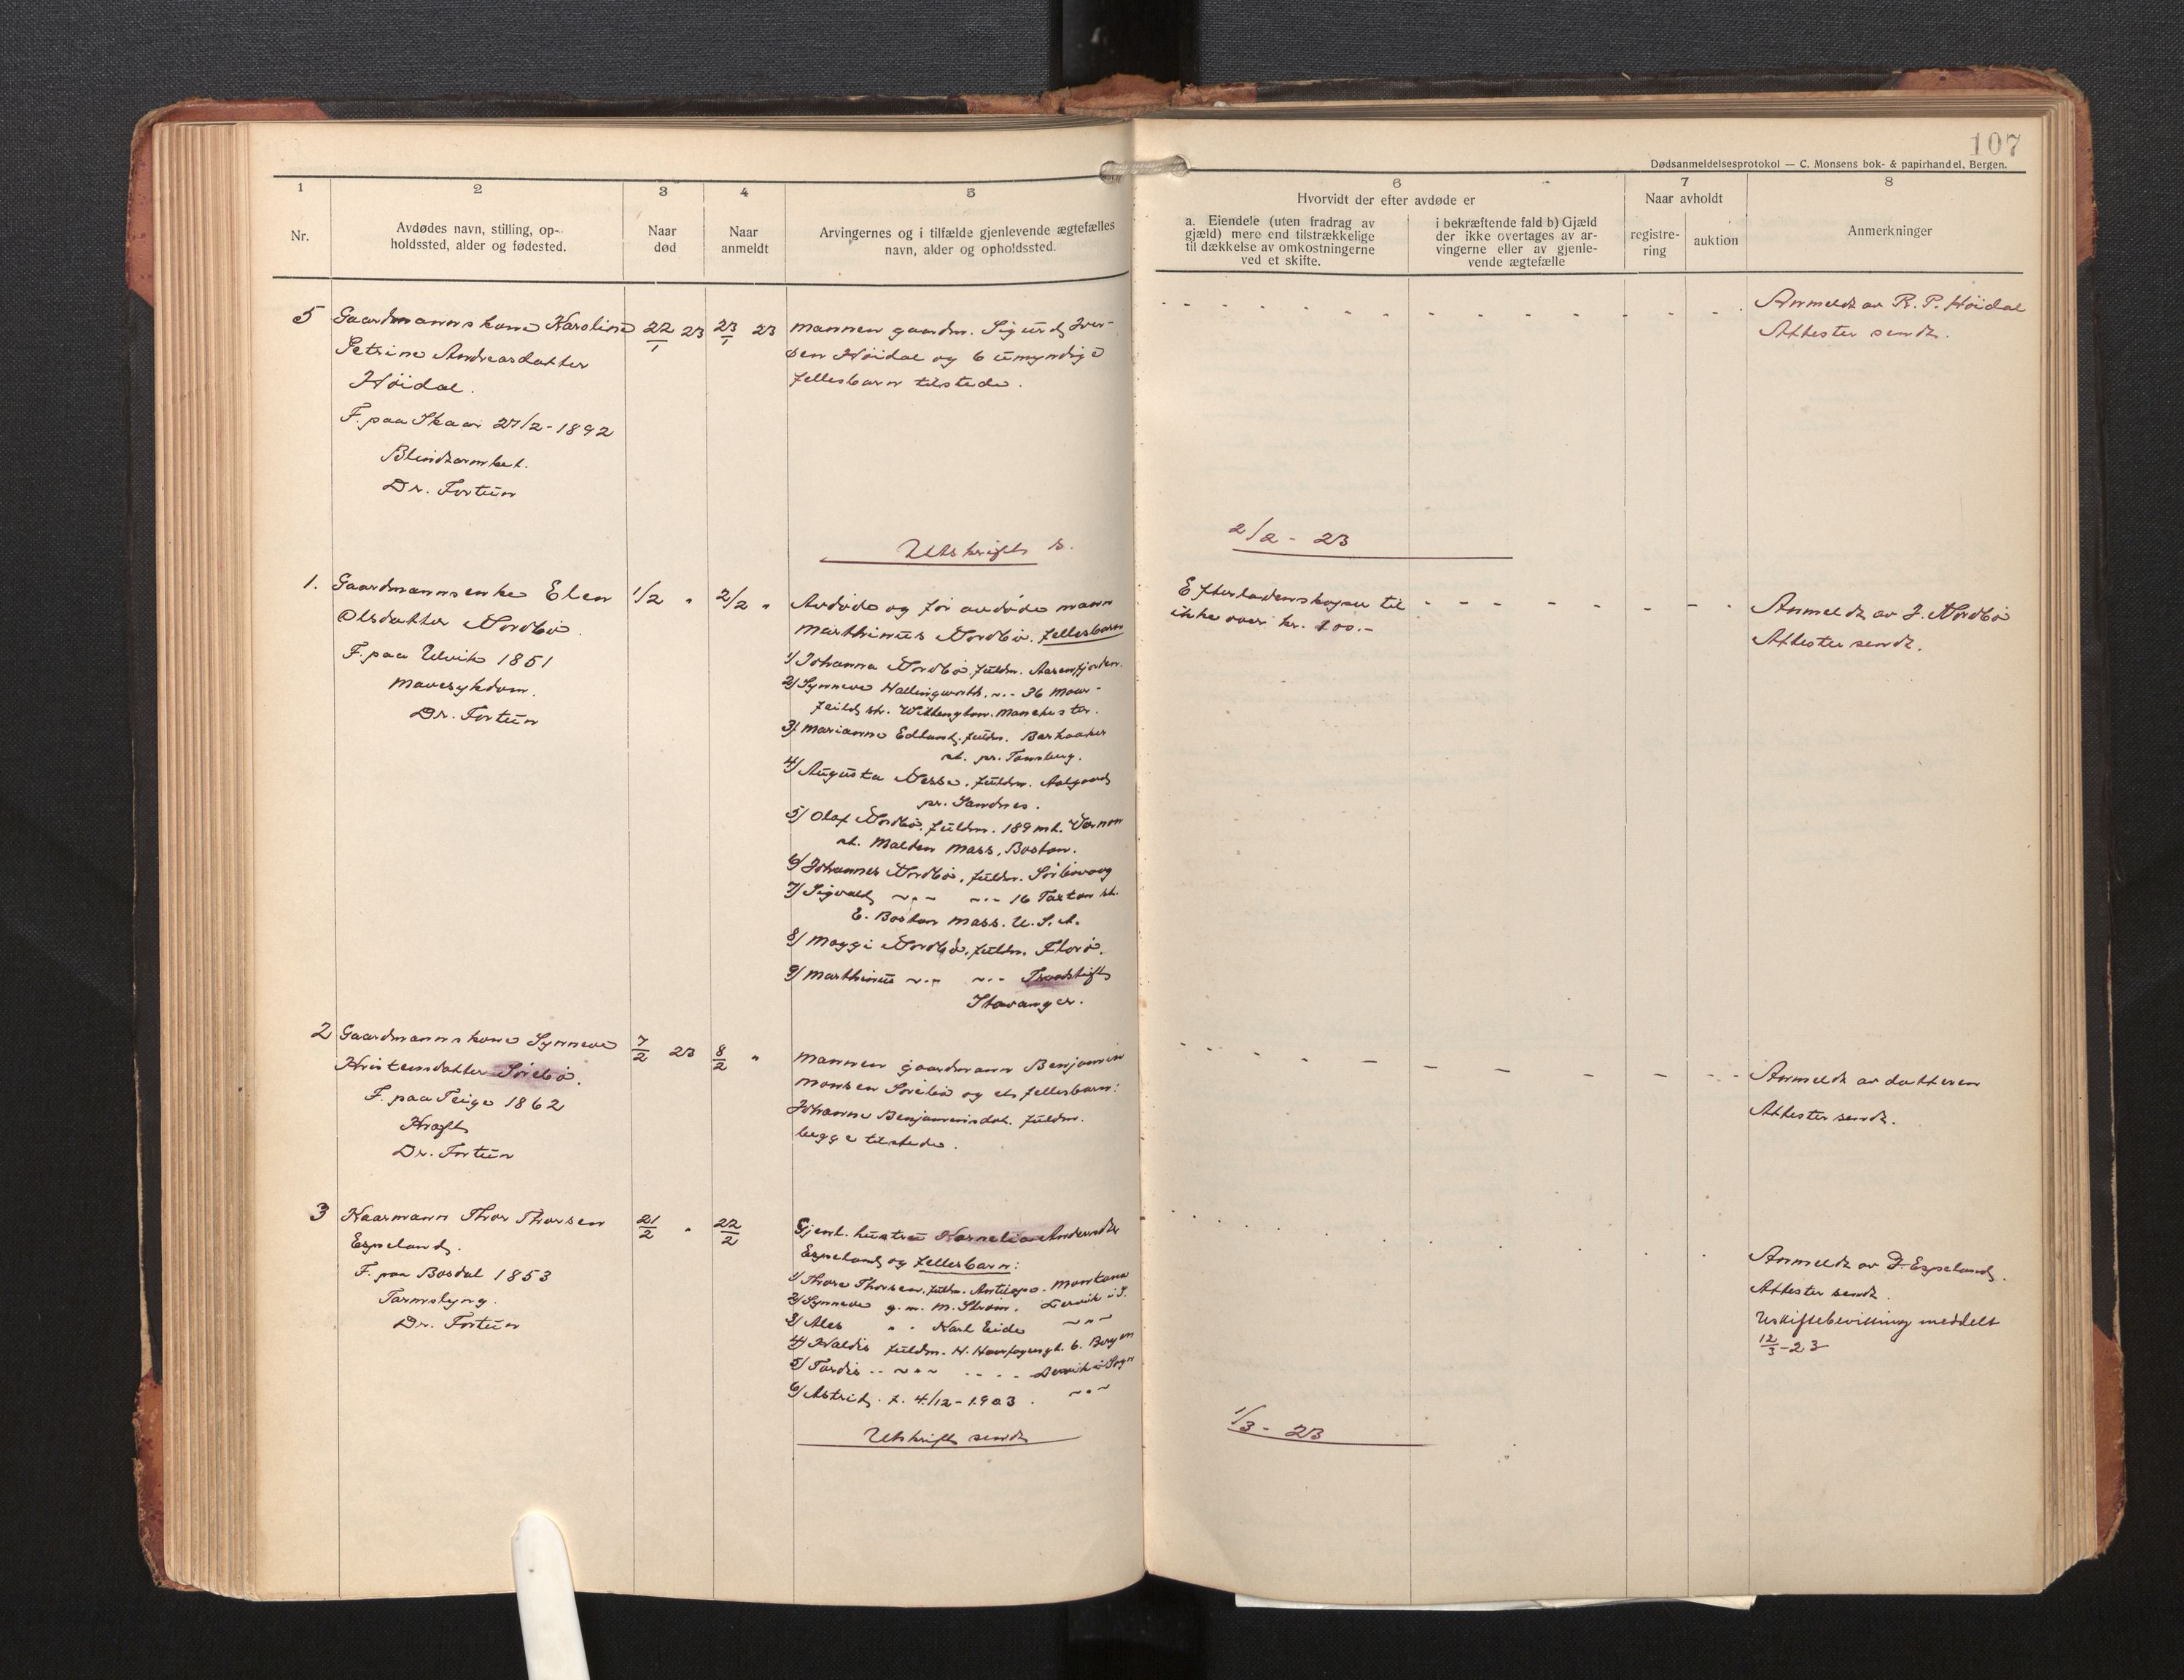 107
Dødsanmeldelsesprotokol — C. Monsens bok- & papirhandel, Bergen.
1
2
3
4
5
6
7
8
Nr.
Avdødes navn, stilling, op-
holdssted, alder og fødested.
Naar
død
Naar
anmeldt
Arvingernes og i tilfælde gjenlevende ægtefælles
navn, alder og opholdssted.
Hvorvidt der efter avdøde er
a. Eiendele (uten fradrag av
gjæld) mere end tilstrækkelige
til dækkelse av omkostningerne
ved et skifte.
i bekræftende fald b) Gjæld
der ikke overtages av ar-
vingerne eller av gjenle-
vende ægtefælle
Naar avholdt
registre-
ring
auktion
Anmerkninger
5
Gaardmannskone Karoline
Petrine Andreasdatter
Høidal.
F. paa Skaar 27/2-1892
Blindtarmbet.
Dr. Fortun
22/1 23
23/1 23
Mannen gaardm. Sigurd Iver-
sen Høidal og 6 umyndige
fellesbarn tilstede.
Anmeldt av R. P. Høidal
Attester sendt.
Utskrift s.
2/2 - 23
1.
Gaardmannsenke Elen
Olsdatter Nordbø.
F. paa Ulvik 1851
Mavesykdom.
Dr. Fortun
1/2 "
2/2 "
Avdøde og før avdøde mann
Marthinus Nordbø. fellesbarn
1/ Johanna Nordbø. fuldm. Aasenfjorden.
2/ Synneve Hallingworth. -"- 36 Moor-
feild str. Wittington. Manchester.
3/ Marianne Edlund. fuldm. Barkaaker
st. pr. Tønsberg.
4/ Augusta Nesse. fuldm. Aalgaard
pr. Sandnes.
5/ Olaf Nordbø. fuldm. 189 mt. Vernon
st. Malden Mass, Boston.
6/ Johannes Nordbø, fuldm. Sørbøvaag
7/ Sigvald -"- -"- 16 st.
E. Boston Mass. U.S.A.
8/ Maggi Nordbø, fuldm. Florø.
9/ Marthinus -"- -"-
Stavanger.
Efterladenskaper til
ikke over kr. 100.-
Anmeldt av J. Nordbø
Attester sendt.
2
Gaardmannskone Synneve
Kristensdatter Sørebø.
F. paa Teige 1862
Kræft
Dr. Fortun
7/2 23
8/2 "
Mannen gaardmann Benjamin
Monsen Sørebø og et fellesbarn:
Johanne Benjaminsdat. fuldm.
begge tilstede.
Anmeldt av datteren
Attester sendt.
3
Kaarmann Thor Thorsen
Espeland.
F. paa Bosdal 1853
Tarmslyng.
Dr. Fortun
21/2 "
22/2
Gjenl. hustru Kornelia Andersdtr
Espeland og fellesbarn:
1/ Thore Thorsen, fuldm. Antilope. Montana
2/ Synneve g. m. M. Strøm. Leirvik i S.
3/ Ales " " Karl Eide -"-
4/ Haldis fuldm. H. Haarfagresgt. 6. Bergen
5/ Tordis .. -"- .... Leirvik i Sogn
6/ Astrid. f. 4/12-1903. -"-
Anmeldt av D. Espeland.
Attester sendt.
Uskiftebevilling meddelt
12/3-23
Utskrift sendt
1/3 - 23